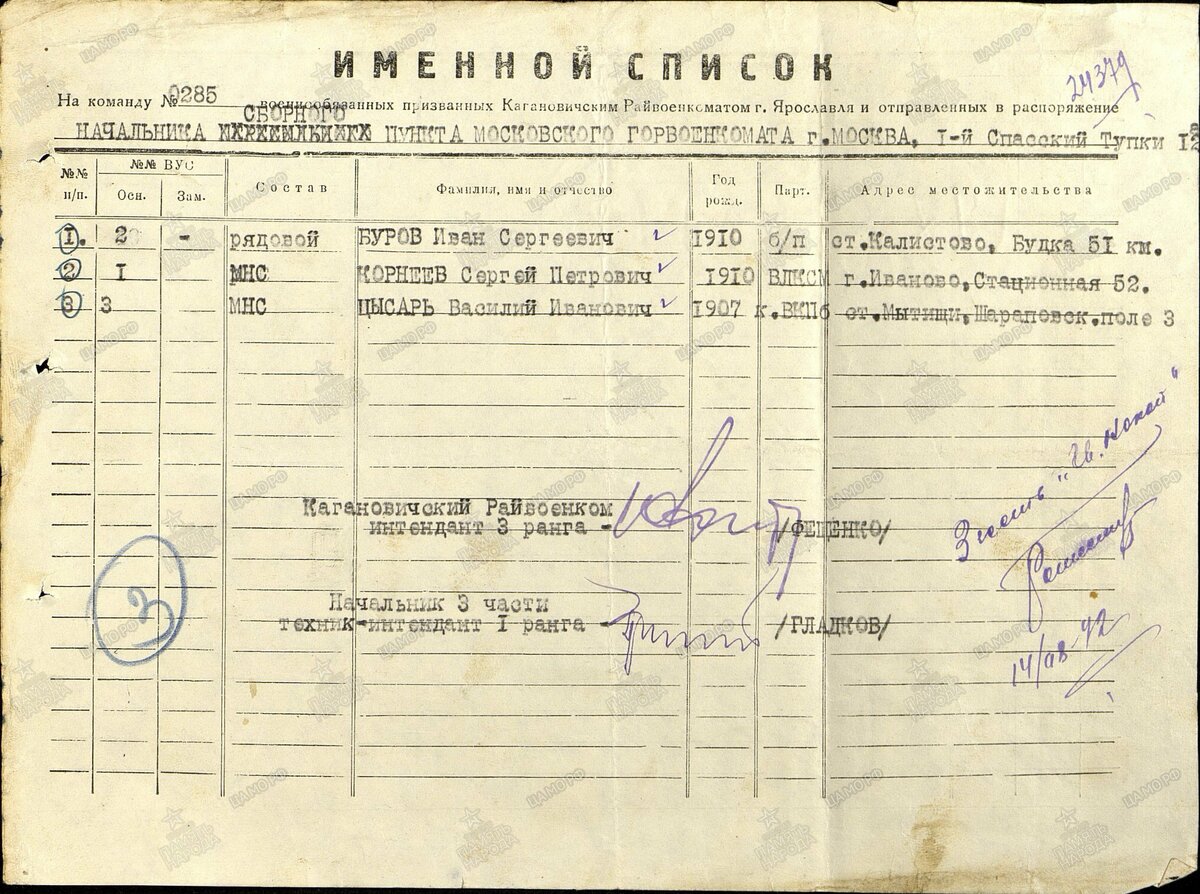 ИМЕННОЙ СПИСОК
24379
На команду № 0285 военнообязанных призванных Кагановичским Райвоенкоматом г. Ярославля и отправленных в распоряжение
СБОРНОГО
НАЧАЛЬНИКА ПУНКТА МОСКОВСКОГО ГОРВОЕНКОМАТА г.МОСКВА, I-й Спасский Тупки 12
№№ п/п. №№ ВУС Осн. Зам. Состав Фамилия, имя и отчество Год рожд. Парт. Адрес местожительства
1. 2 - рядовой БУРОВ Иван Сергеевич 1910 б/п ст.Калистово, Будка 51 км.
2 I МНС КОРНЕЕВ Сергей Петрович 1910 ВЛКСМ г.Иваново,Стационная 52.
3 3 МНС ЦЫСАРЬ Василий Иванович 1907 к.ВКПб ст.Мытищи,Шараповск.поле 3
Кагановичский Райвоенком
интендант 3 ранга - /ФЕЩЕНКО/
Начальник 3 части
техник-интендант I ранга - /ГЛАДКОВ/
3
14/08-42
ЦАМО.РФ
ПАМЯТЬ НАРОДА